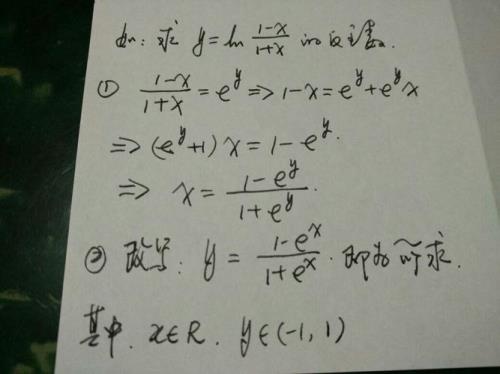 如:求 y=ln (1-x)/(1+x) 的反函数.
① (1-x)/(1+x) = e^y => 1-x = e^y + e^y x
=> (e^y+1) x = 1-e^y.
=> x = (1-e^y)/(1+e^y).
② 改写: y = (1-e^x)/(1+e^x). 即为所求.
其中. x∈R. y∈(-1,1)